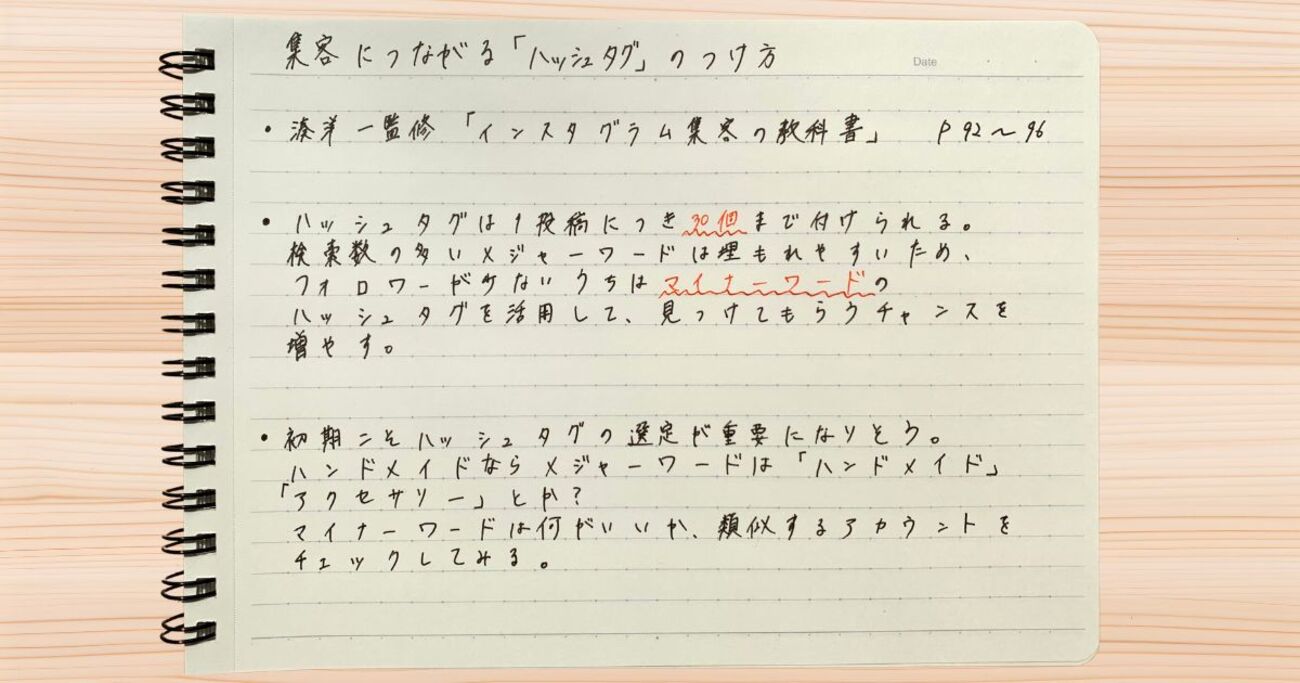 集客につながる「ハッシュタグ」のつけ方
Date
• 湊洋一監修「インスタグラム集客の教科書」 P92〜96
• ハッシュタグは1投稿につき30個まで付けられる。
検索数の多いメジャーワードは埋もれやすいため、
フォロワーが少ないうちはマイナーワードの
ハッシュタグを活用して、見つけてもらうチャンスを
増やす。
• 初期こそハッシュタグの選定が重要になりそう。
ハンドメイドならメジャーワードは「ハンドメイド」
「アクセサリー」とか?
マイナーワードは何がいいか、類似するアカウントを
チェックしてみる。